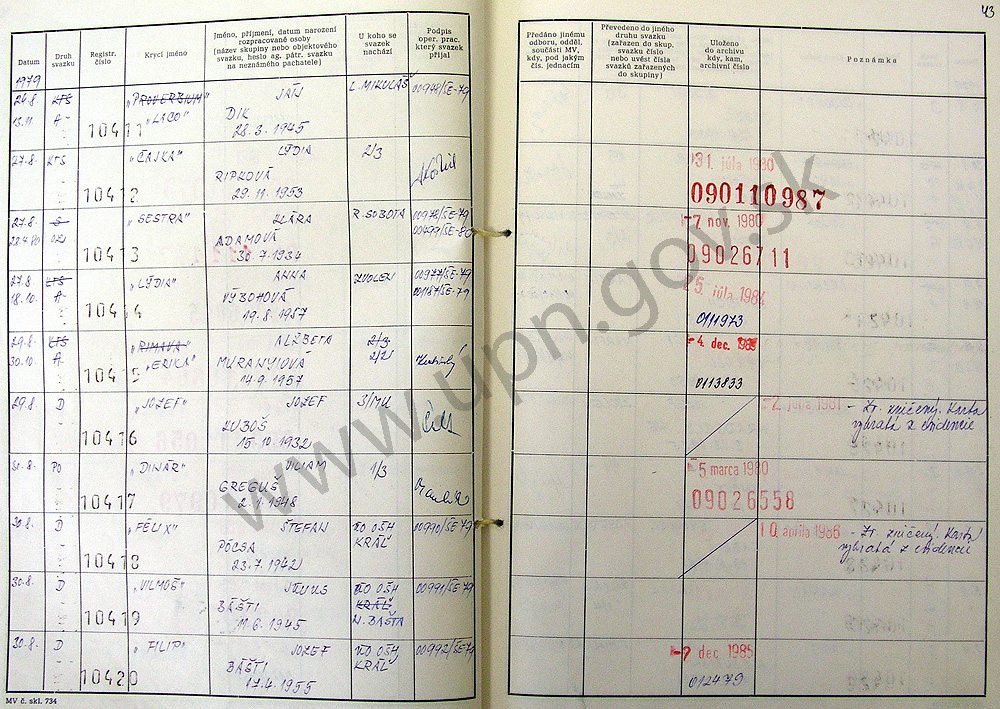 43
Datum
Druh svazku
Registr. číslo
Krycí jméno
Jméno, příjmení, datum narození rozpracované osoby (název skupiny nebo objektového svazku, heslo ag. pátr. svazku na neznámého pachatele)
U koho se svazek nachází
Podpis oper. prac. který svazek přijal
Předáno jinému odboru, odděl. součásti MV, kdy, pod jakým čís. jednacím
Převedeno do jiného druhu svazku (zařazen do skup. svazku číslo nebo uvést čísla svazků zařazených do skupiny)
Uloženo do archivu kdy, kam, archivní číslo
Poznámka
1979
KTS "PROVERBIUM" JÁN L. MIKULÁŠ 00948/ŠE-79
13.11. A- 10411 "LACO" DIK
28. 3. 1945
27.8. KTS "ČAJKA" LÝDIA 2/3
10412 RIPKOVÁ
29. 11. 1953
31. júla 1980
090110987
27.8. S "SESTRA" KLÁRA R. SOBOTA 00978/ŠE-79
28.4.80 10413 ADAMOVÁ 00499/ŠE-80
30. 7. 1934
-7 nov. 1980
09026711
27.8 KTS "LÝDIA" ANNA ZVOLEN 00977/ŠE-79
18.10. A- 10414 VÝBOHOVÁ 001187/ŠE-79
19. 8. 1957
25. júla 1984
0111973
29.8. KTS "RIMAVA" ALŽBETA 2/3
30.10. A. 10415 "ERIKA" MURANYIOVÁ 2/2
14. 9. 1957
-4. dec. 1985
0113833
29.8. D "JOZEF" JOZEF 3/MU
10416 ĽUBOŠ
15. 10. 1932
- Zv. zničený. Karta
vybratá z evidencie
30.8. PO "DINÁR" VILIAM 1/3
10417 GREGUŠ
2. 1. 1948
5 marca 1980
09026558
30.8. D "FÉLIX" ŠTEFAN VO OŠH 00990/ŠE-79
10418 PÓCSA KRÁĽ
23. 7. 1942
10. apríla 1986 - Zv. zničený. Karta
vybratá z evidencie
30.8. D "VILMOŠ" JÚLIUS VO OŠH 00991/ŠE-79
10419 BÁŠTI KRÁĽ
11. 6. 1945 N. BAŠTA
30.8. D "FILIP" JOZEF VO OŠH 00992/ŠE-79
10420 BÁŠTI KRÁĽ
17. 4. 1955
-9 dec. 1985
012479
MV č. skl. 734
www.upn.gov.sk